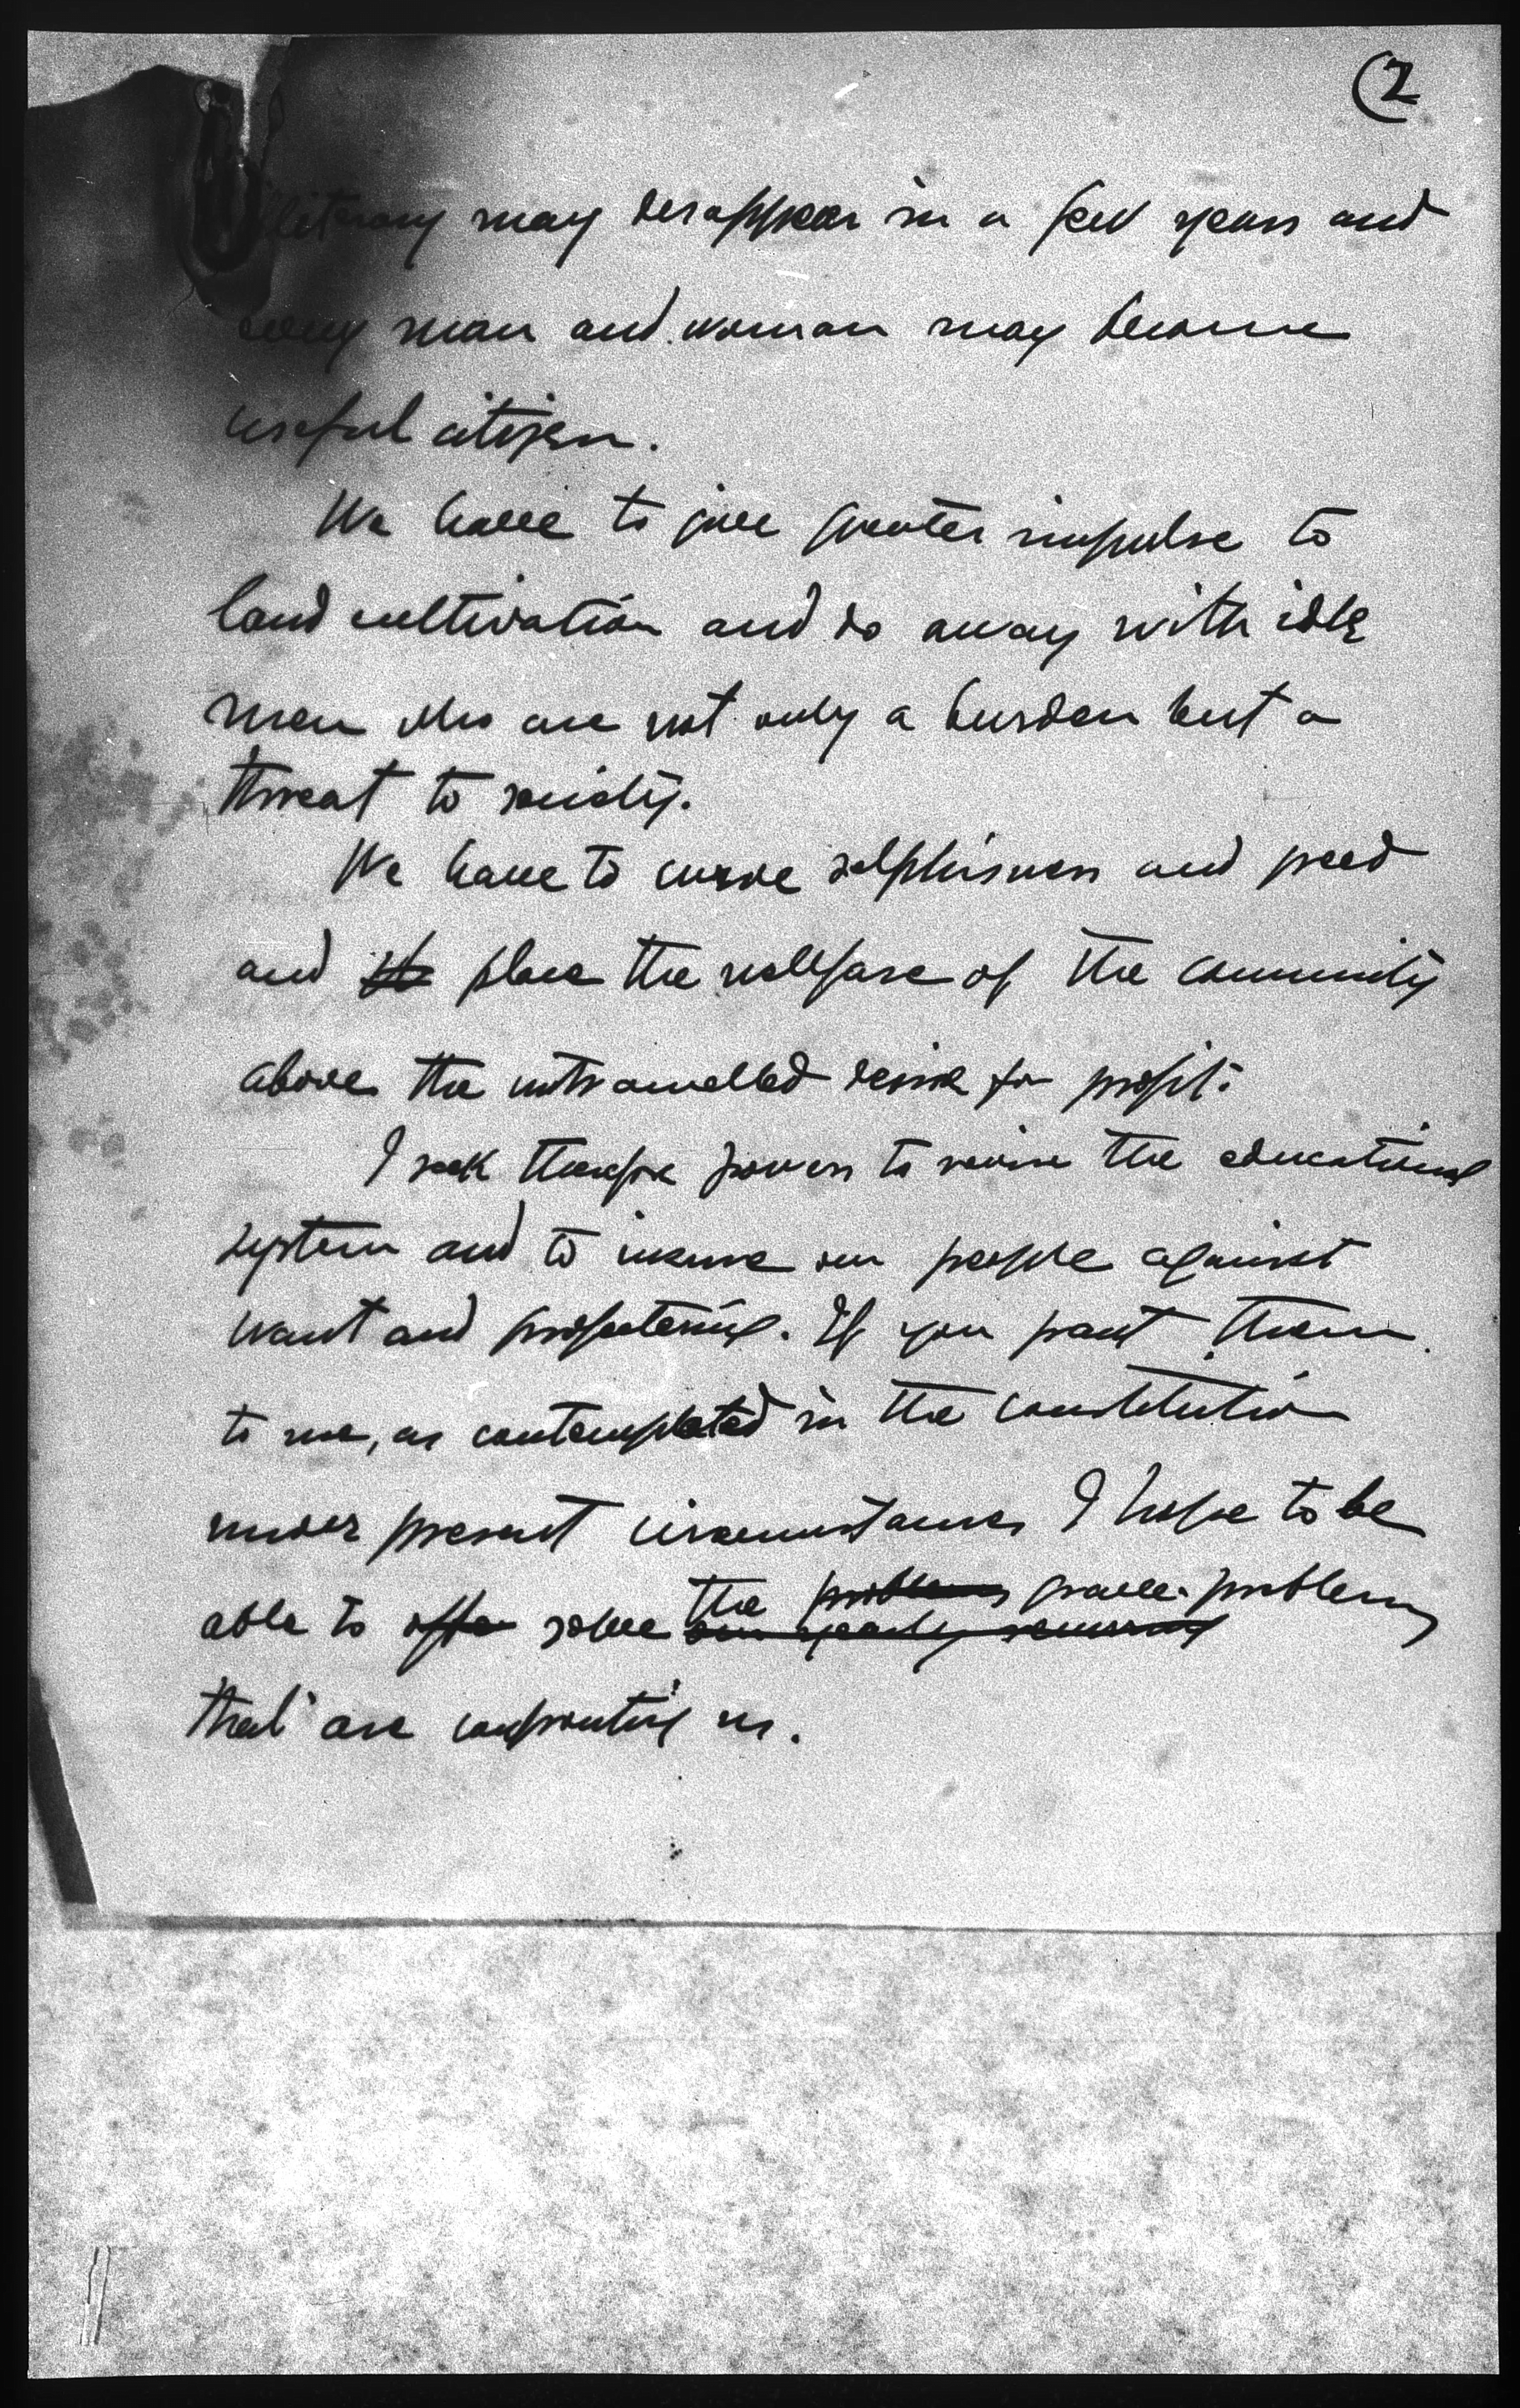 (2
illiteracy may desappear in a few years and
every man and woman may become
useful citizen.
We have to give greater impulse to
land cultivation and do away with idle
men who are not only a burden but a
threat to society.
We have to curve selphisness and greed
and place the wellfare of the community
above the untramelled desire for profit.
I seek therefore powers to revise the educational
system and to insure our people against
want and profeetering. If you grant them
to me, as contemplated in the constitution
under present circumstances I hope to be
able to offer solve the problems grave problems
our yearly recurring
that are confronting us.